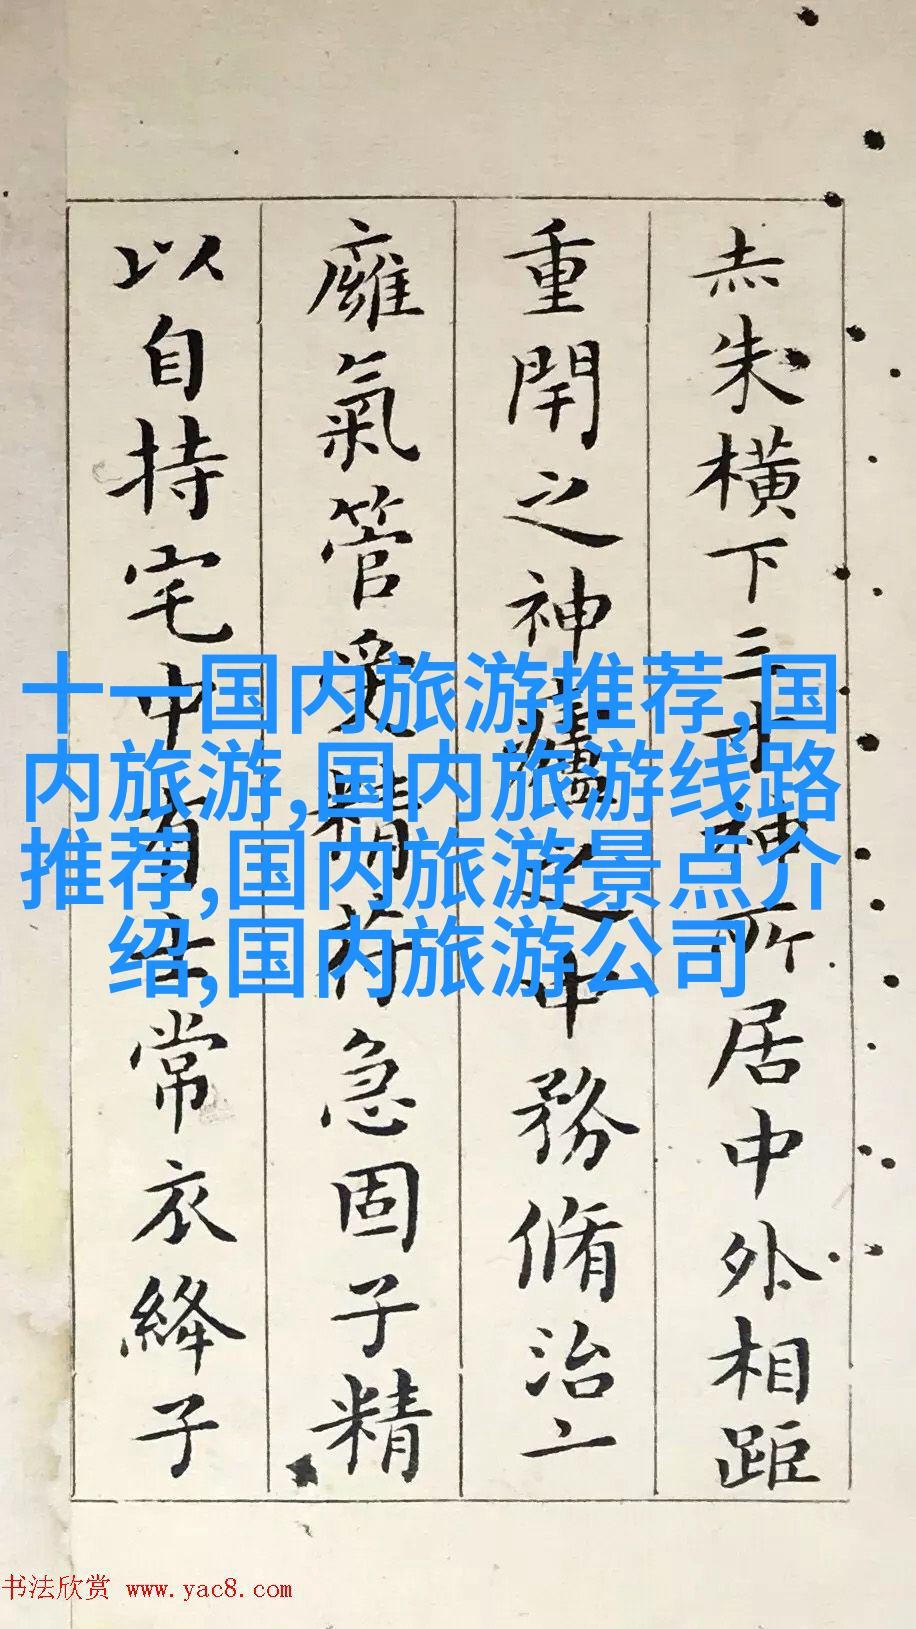 赤朱橫下三寸神所居中外相距
重閈之神廬之中務脩治二
廱氣管受精府急固子精
以自持宅中有士常衣絳子
十一国内旅游推荐,国
内旅游,国内旅游线路
推荐,国内旅游景点介
绍,国内旅游公司
书法欣赏 www.yac8.com